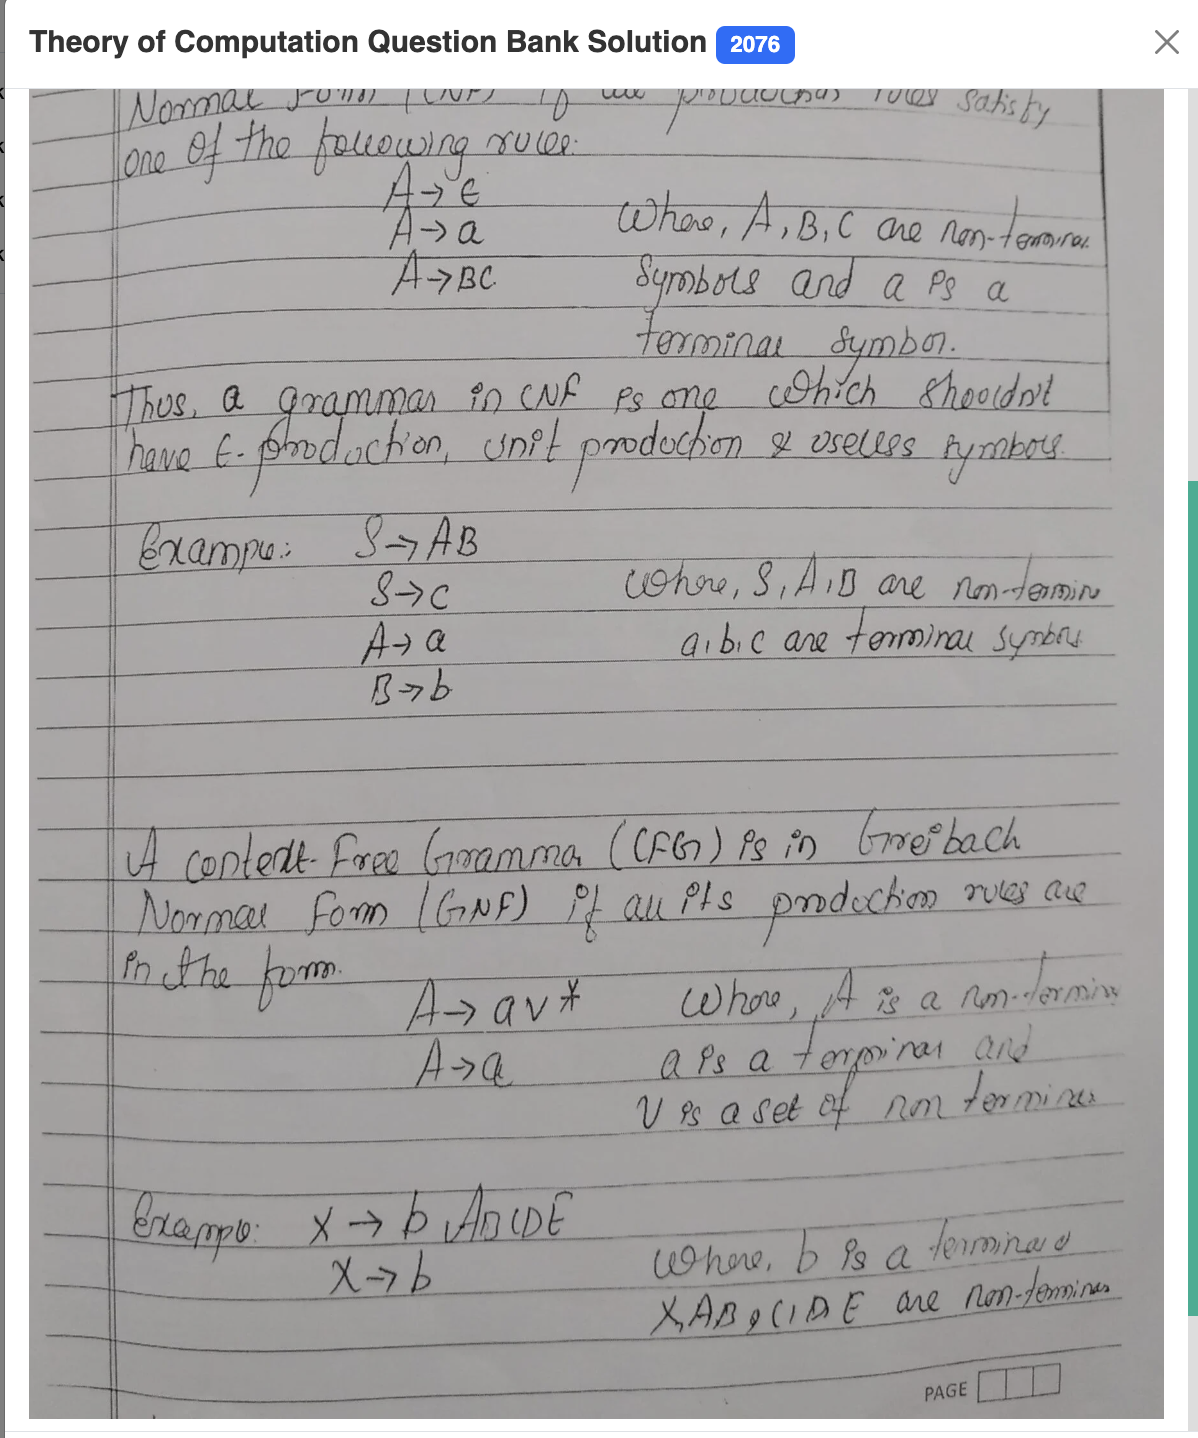 Theory of Computation Question Bank Solution 2076
Normal Form (CNF) if all productions rules satisfy
one of the following rules:
A → ϵ
A → a
A → BC
Where, A, B, C are non-terminal
Symbols and a is a
terminal symbol.
Thus, a grammar in CNF is one which shouldn't
have ϵ-production, unit production & useless symbols.
Example:
S → AB
S → c
A → a
B → b
where, S, A, B are non-termin
a, b, c are terminal symbols
A context-Free Grammar (CFG) is in Greibach
Normal Form (GNF) if all its production rules are
in the form.
A → av*
A → a
Where, A is a non-termin
a is a terminal and
V is a set of non terminals
Example:
X → b ABCDE
X → b
Where, b is a terminal
X, A B, C, D, E are non-terminals
PAGE